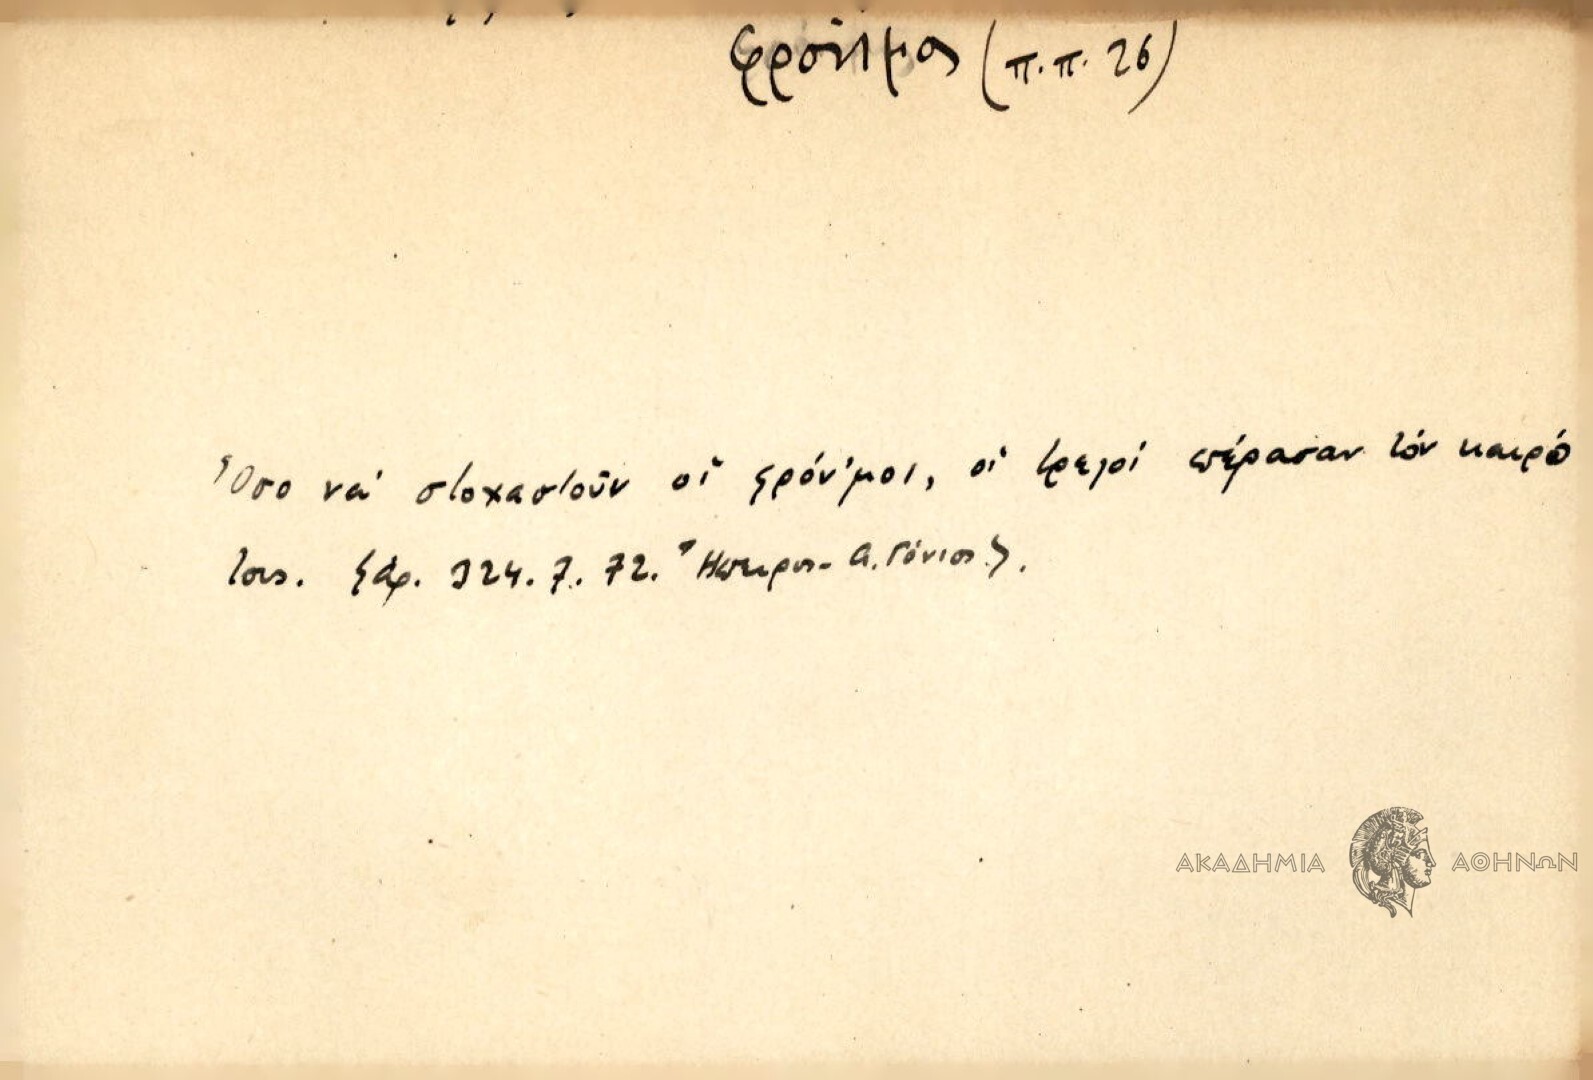 φρόνιμος (π.π. 26)
Ὅσο νά στοχαστοῦν οἱ φρόν'μοι, οἱ τρελοί ἐπέρασαν τόν καιρό
τους. (ἀρ. 324. 7. 72. Ἤπειρος - Α. Γόνιος).
ΑΚΑΔΗΜΙΑ ΑΘΗΝΩΝ